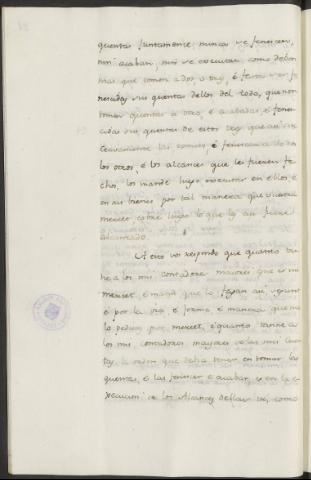 quentas juntamente nunca se fenescen,
nin acaban, nin se executan, como deben
mas que tomen a dos o tres, é fasta ser fe
nescidas sus quentas dellos del todo, que non
tomen quentas a otro, é acabadas, é fenes
cidas sus quentas de estos tres que asi su
cesivamente las tomen, é fenescan a todos
los otros, é los alcances que les fueren fe
chos, los mande luego executar en ellos, é
en sus bienes por tal manera que vuestra
merced cobre luego lo que les asi fuere
alcanzado.
A esto vos respondo que quanto ta
ñe a los mis contadores mayores que es mi
merced, é mando que lo fagan asi, segunt
é por la via é forma é manera que me
lo pedides por merced, é quanto tanne a
los mis contadores mayores de las mis cuen
tas, la orden que deben tener en tomar las
quentas, é las fenescer é acabar, é en la e
xecucion de los Alcances dellas etc, como